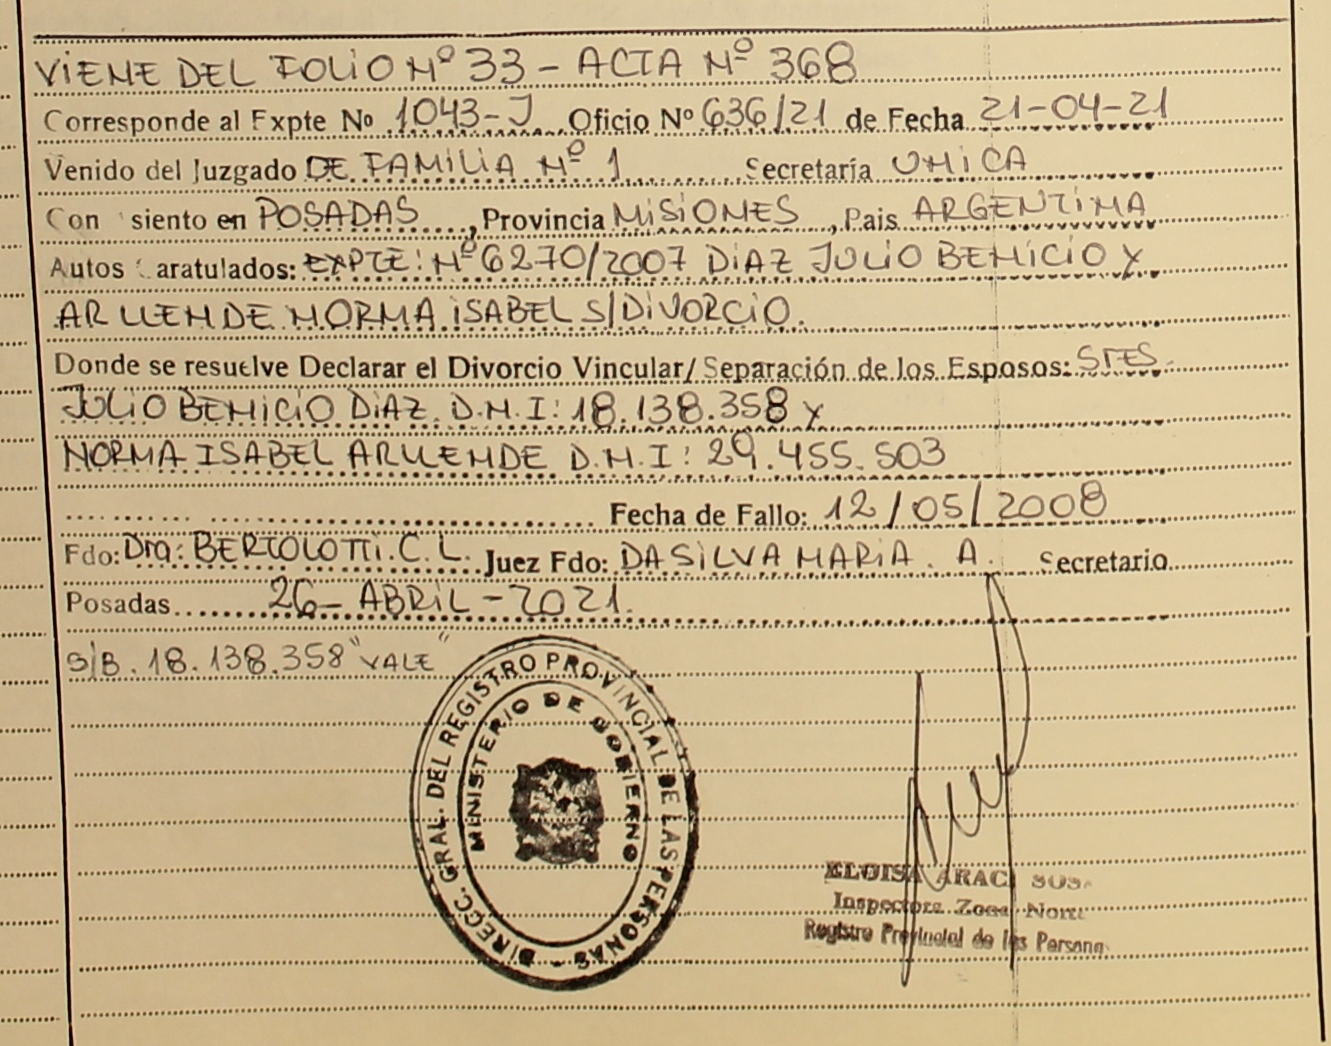 VIENE DEL FOLIO Nº 33 - ACTA Nº 368
Corresponde al Expte Nº 1043-J Oficio Nº 636/21 de Fecha 21-04-21
Venido del Juzgado DE FAMILIA Nº 1 Secretaría UNICA
Con siento en POSADAS, Provincia MISIONES, Pais ARGENTINA
Autos aratulados: EXPTE: Nº 6270/2007 DIAZ JULIO BENICIO Y
ARLLENDE NORMA ISABEL S/DIVORCIO.
Donde se resuelve Declarar el Divorcio Vincular/Separación de los Esposos: STES.
JULIO BENICIO DIAZ. D.N.I: 18.138.358 Y
NORMA ISABEL ARLLENDE D.N.I: 29.455.503
Fecha de Fallo: 12/05/2008
Fdo: Dra: BERTOLOTTI. C. L. Juez Fdo: DA SILVA MARIA. A. Secretario
Posadas 26 - ABRIL - 2021.
S/B. 18.138.358 "VALE"
DIRECC. GRAL. DEL REGISTRO PROVINCIAL DE LAS PERSONAS -
MINISTERIO DE GOBIERNO
ELOISA ARACI SOSA
Inspectora Zona Norte
Registro Provincial de las Personas